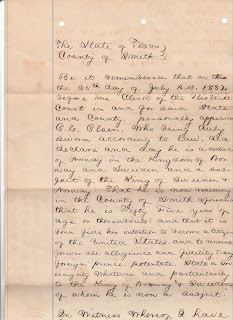 The State of Texas
County of Smith
Be it remembered that on this
the 25th day of July A.D. 1882
before me Clerk of the District
Court in and for said State
and County personally appeared
Olson, who being duly
sworn according to law, did
declare and say he is a native
of Norway in the Kingdom of Nor
way and Sweden and a sub
ject of the King of Sweden &
Norway That he is now residing
in the County of Smith aforesaid
that he is Fifty five year of
age or thereabouts and that it is
bona fide his intention to become a Citizen
of the United States, and to renounce
forever all allegiance and fidelity to any
foreign prince potentate, State or Sov
ereignty whatever and particularly
to the King of Norway & Sweden
of whom he is now a subject.
In Witness Whereof I have